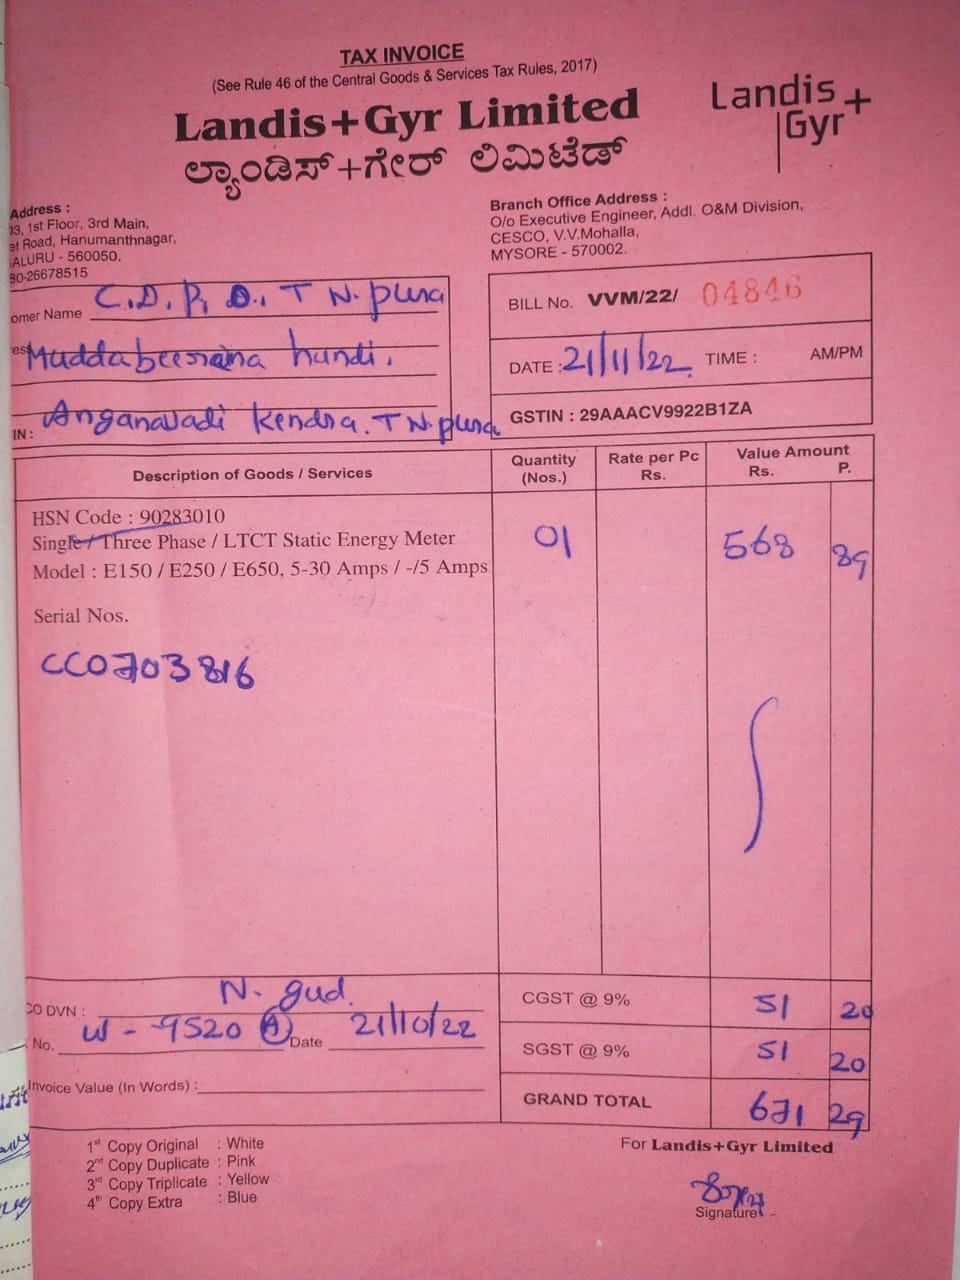 TAX INVOICE
(See Rule 46 of the Central Goods & Services Tax Rules, 2017)
Landis+Gyr Limited
ಲ್ಯಾಂಡಿಸ್+ಗೇರ್ ಲಿಮಿಟೆಡ್
Landis
Gyr+
Address :
03, 1st Floor, 3rd Main,
et Road, Hanumanthnagar,
ALURU - 560050.
80-26678515
Branch Office Address :
O/o Executive Engineer, Addl. O&M Division,
CESCO, V.V.Mohalla,
MYSORE - 570002.
omer Name C.D.P.O., T N.pura
ess Muddabeerana hundi.
IN : Anganavadi Kendra. T N.pura
BILL No. VVM/22/ 04846
DATE : 21/11/22 TIME : AM/PM
GSTIN : 29AAACV9922B1ZA
Description of Goods / Services Quantity (Nos.) Rate per Pc Rs. Value Amount Rs. P.
HSN Code : 90283010
Single / Three Phase / LTCT Static Energy Meter 01 568 89
Model : E150 / E250 / E650, 5-30 Amps / -/5 Amps
Serial Nos.
CC0703816
CO DVN : N. gud.
No. W - 9520 (A) Date 21/10/22
Invoice Value (In Words) :
CGST @ 9% 51 20
SGST @ 9% 51 20
GRAND TOTAL 671 29
1st Copy Original : White
2nd Copy Duplicate : Pink
3rd Copy Triplicate : Yellow
4th Copy Extra : Blue
For Landis+Gyr Limited
Signature